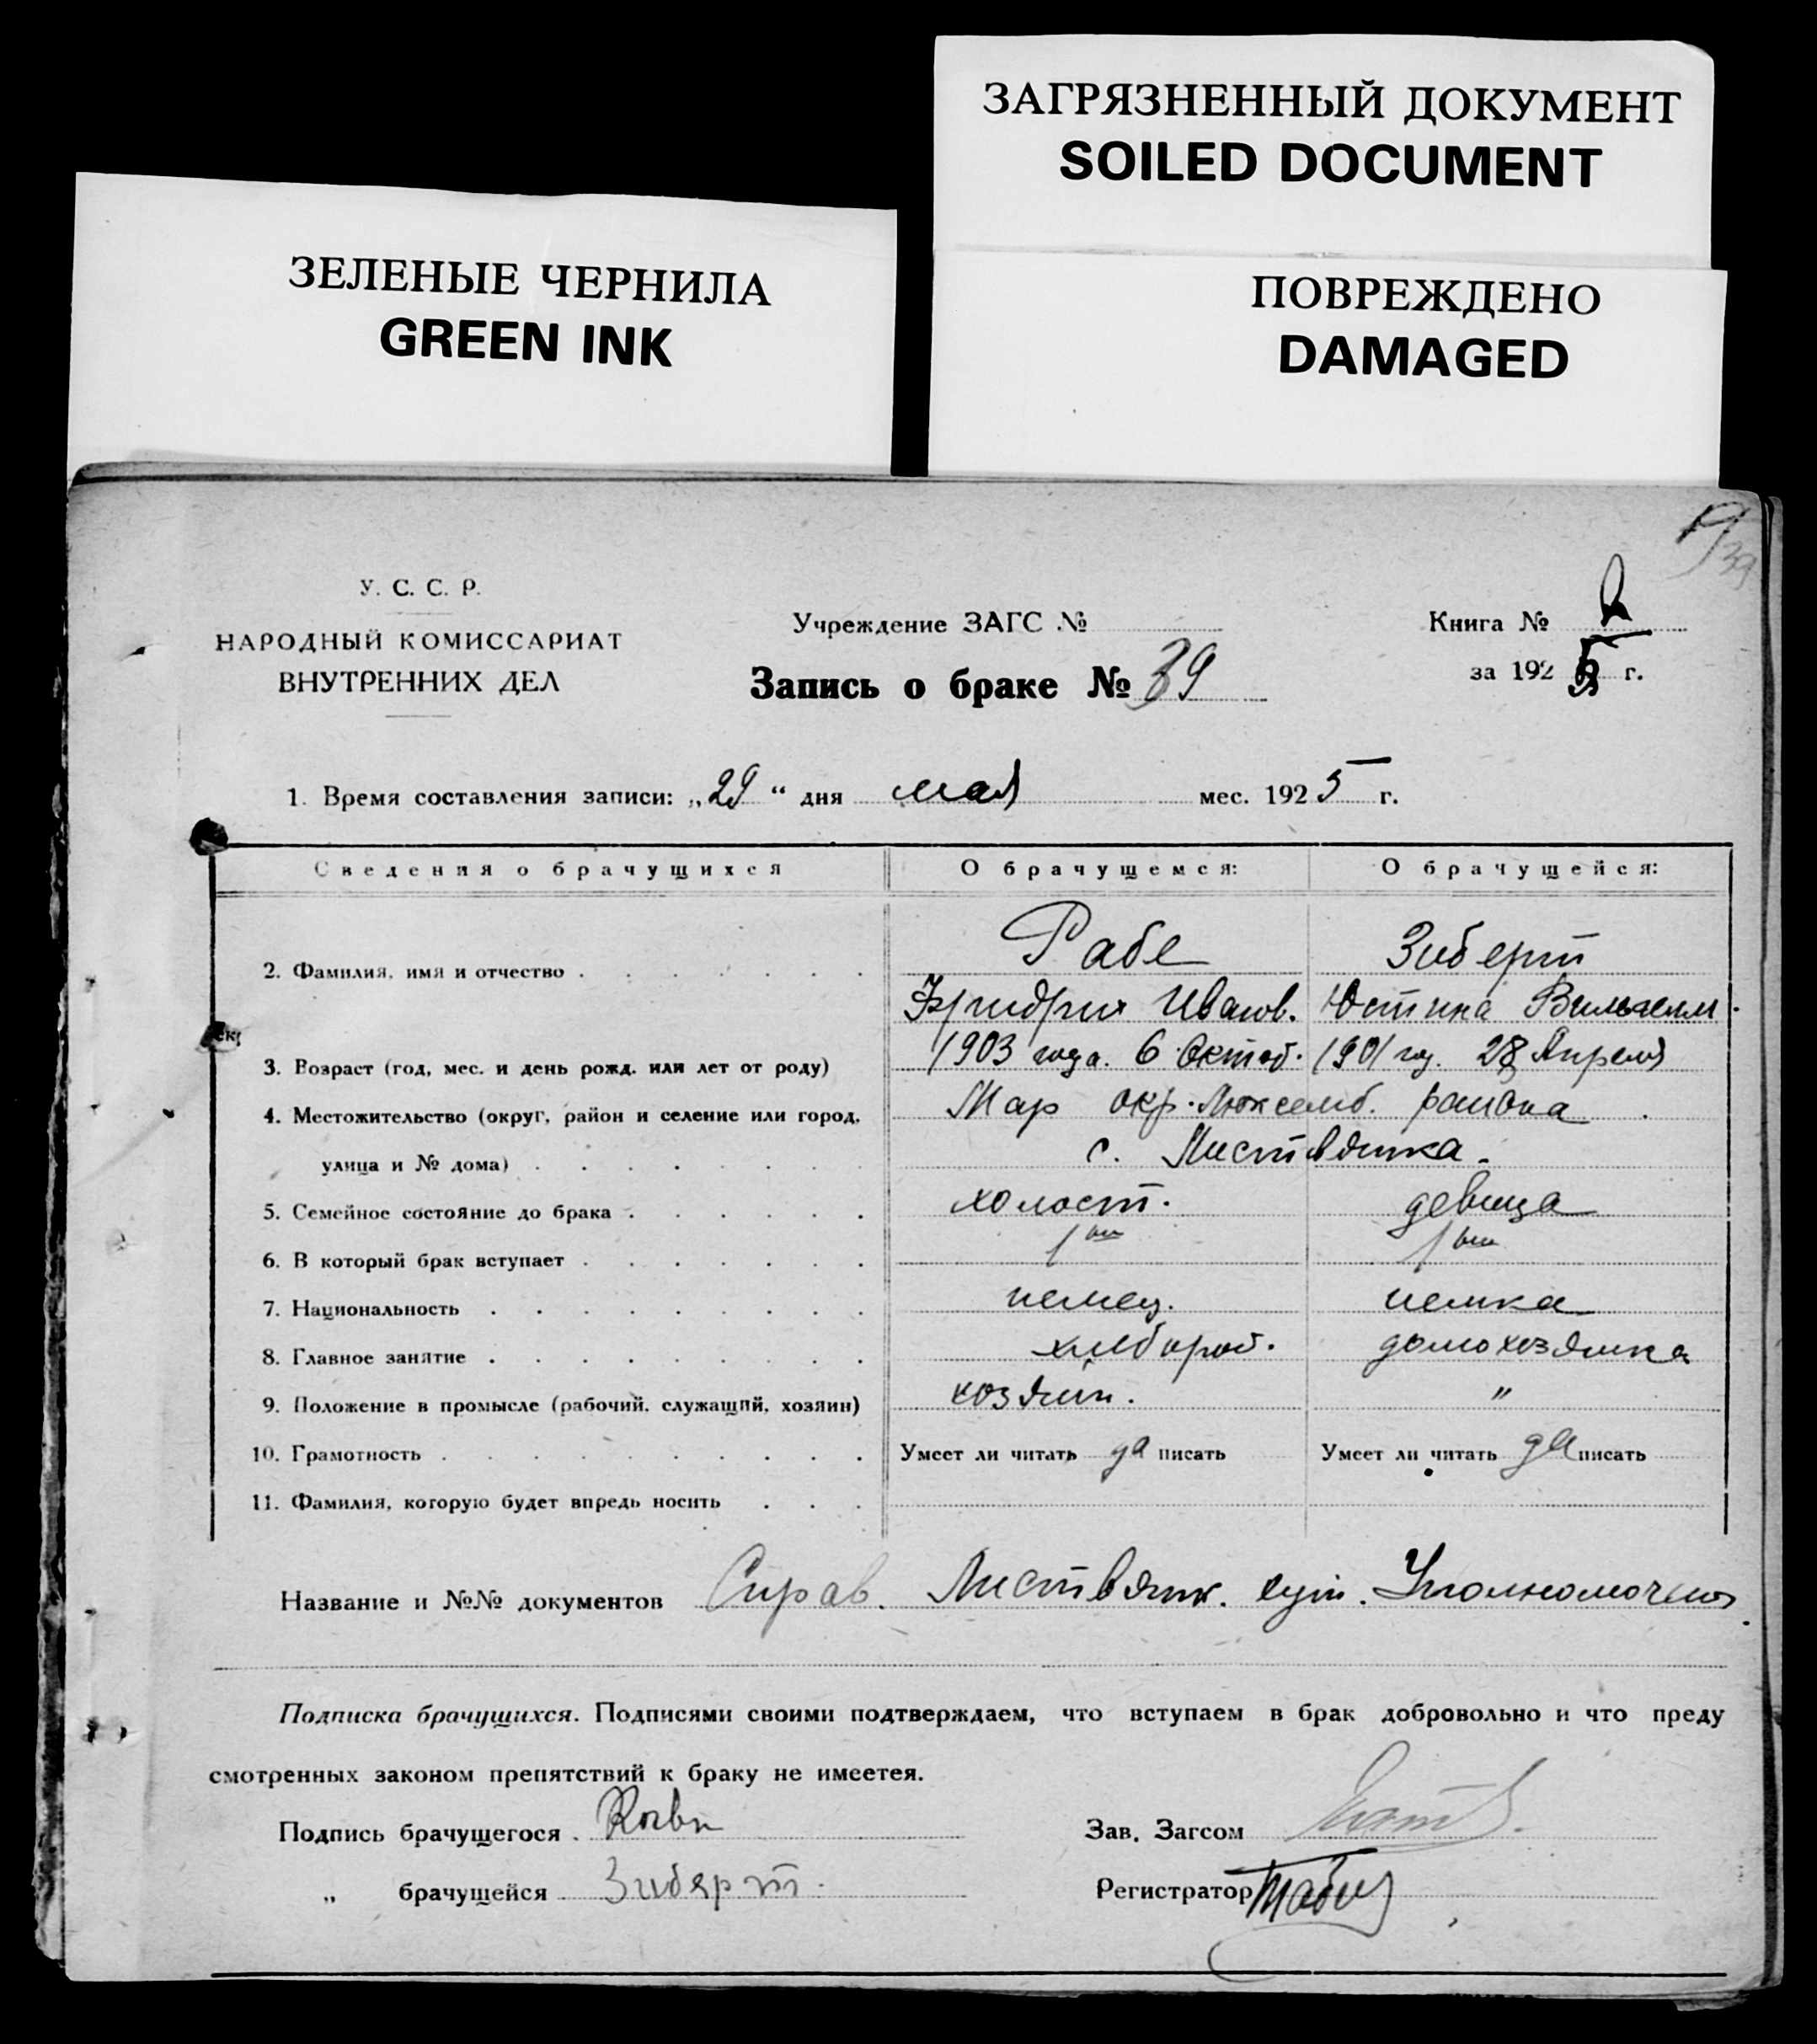 ЗАГРЯЗНЕННЫЙ ДОКУМЕНТ
SOILED DOCUMENT
ЗЕЛЕНЫЕ ЧЕРНИЛА
GREEN INK
ПОВРЕЖДЕНО
DAMAGED
39
У. С. С. Р.
НАРОДНЫЙ КОМИССАРИАТ
ВНУТРЕННИХ ДЕЛ
Учреждение ЗАГС №
Запись о браке № 39
Книга № 2
за 1925 г.
1. Время составления записи: „29“ дня мая мес. 1925 г.
Сведения о брачущихся О брачущемся: О брачущейся:
2. Фамилия, имя и отчество Рабе Зиберт
Фридрих Иванов. Юстина Вильгельм.
3. Возраст (год, мес. и день рожд. или лет от роду) 1903 года. 6 Октяб. 1901 го. 28 Апреля
4. Местожительство (округ, район и селение или город, Мар окр. Люксемб. района
улица и № дома) с. Листвянка.
5. Семейное состояние до брака холост. девица
6. В который брак вступает 1ый 1ый
7. Национальность немец. немка
8. Главное занятие хлебороб. домохозяйка
9. Положение в промысле (рабочий, служащий, хозяин) хозяин. "
10. Грамотность Умеет ли читать да писать Умеет ли читать да писать
11. Фамилия, которую будет впредь носить
Название и №№ документов Справ. Листвянк. Уполномочен
Подписка брачущихся. Подписями своими подтверждаем, что вступаем в брак добровольно и что преду
смотренных законом препятствий к браку не имеетея.
Подпись брачущегося Зав. Загсом
„ брачущейся Зиберт. Регистратор